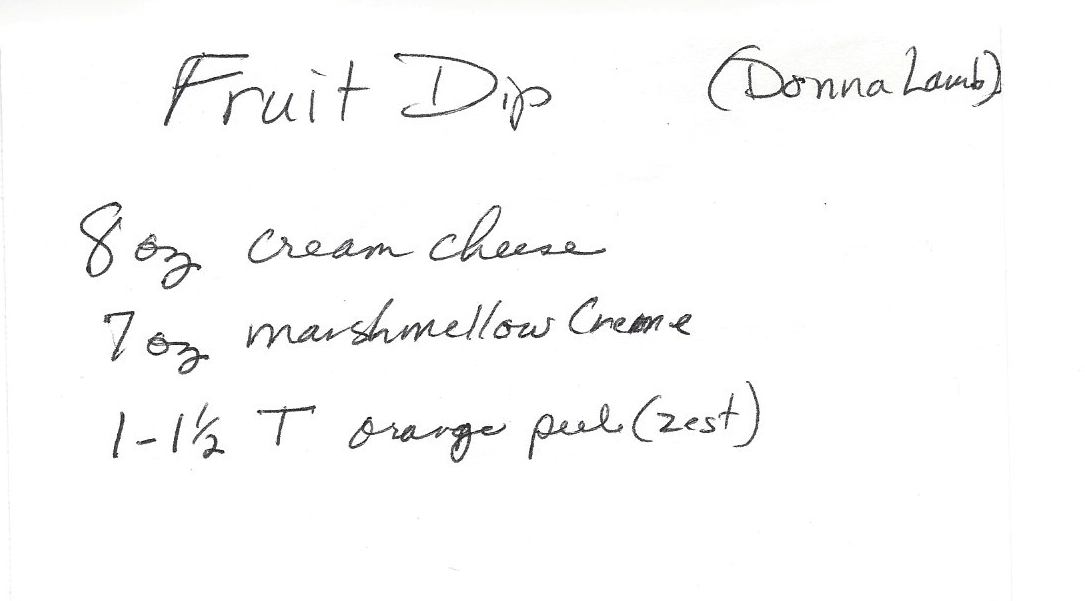 Fruit Dip (Donna Lamb)
8 oz cream cheese
7 oz marshmellow Creme
1-1½ T orange peel (zest)